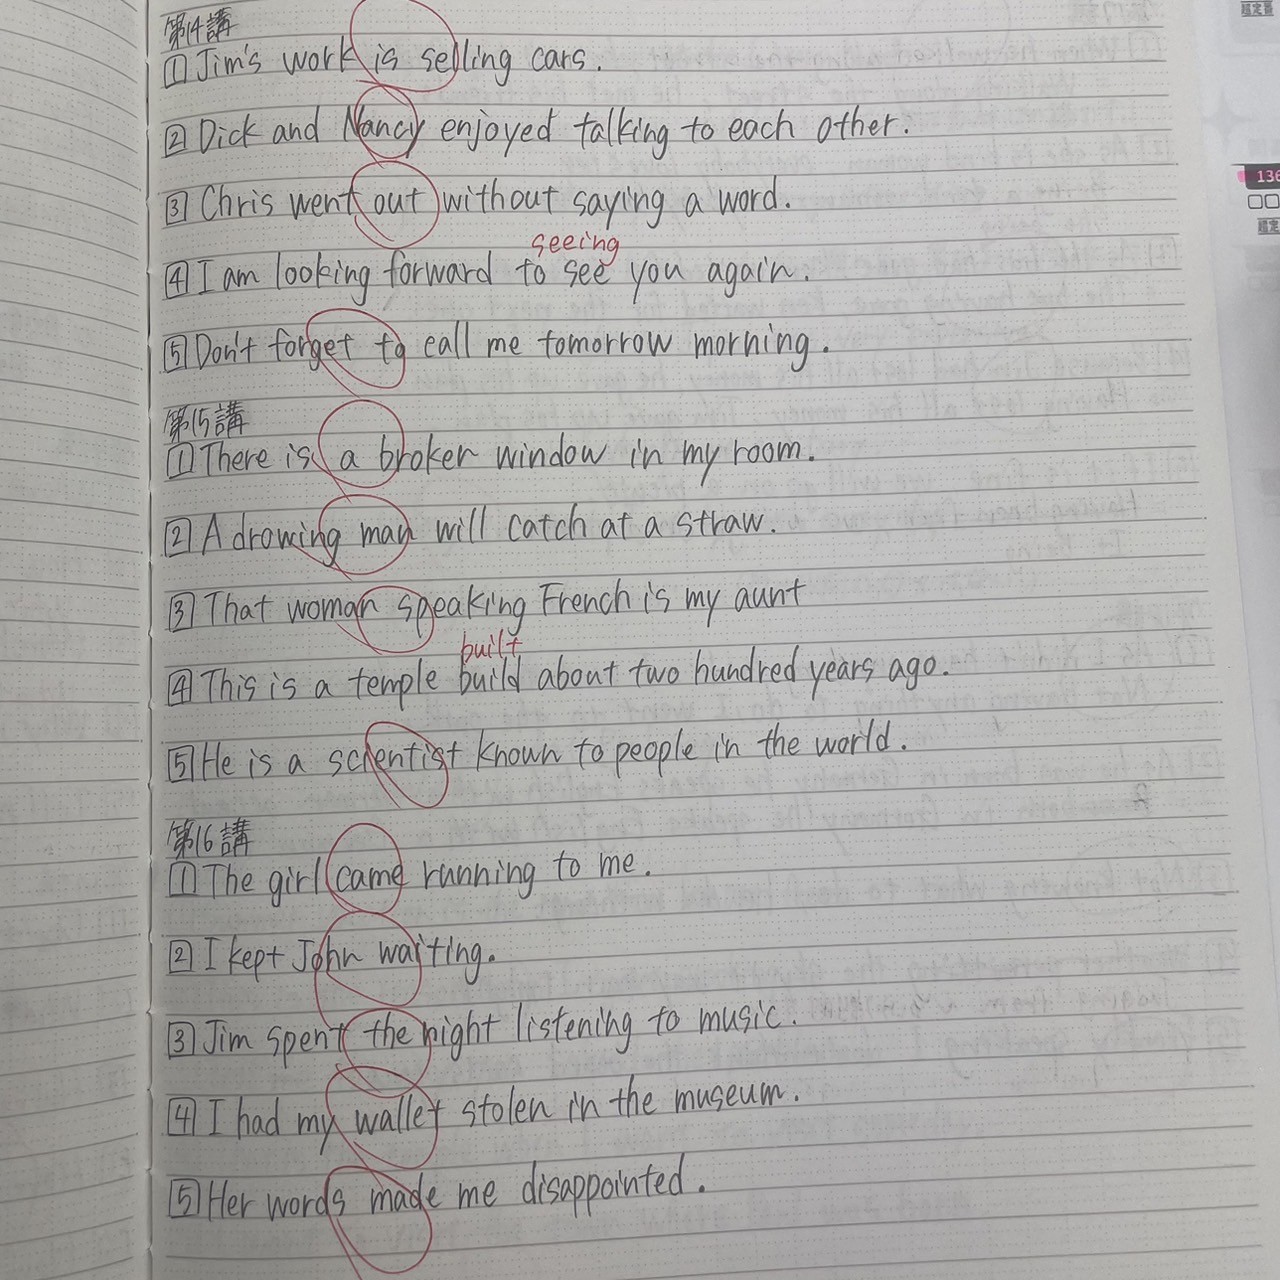 第14講
1 Jim's work is selling cars.
2 Dick and Nancy enjoyed talking to each other.
3 Chris went out without saying a word.
seeing
4 I am looking forward to see you again.
5 Don't forget to call me tomorrow morning.
第15講
1 There is a broker window in my room.
2 A drowing man will catch at a straw.
3 That woman speaking French is my aunt
built
4 This is a temple build about two hundred years ago.
5 He is a scientist known to people in the world.
第16講
1 The girl came running to me.
2 I kept John waiting.
3 Jim spent the night listening to music.
4 I had my wallet stolen in the museum.
5 Her words made me disappointed.
136